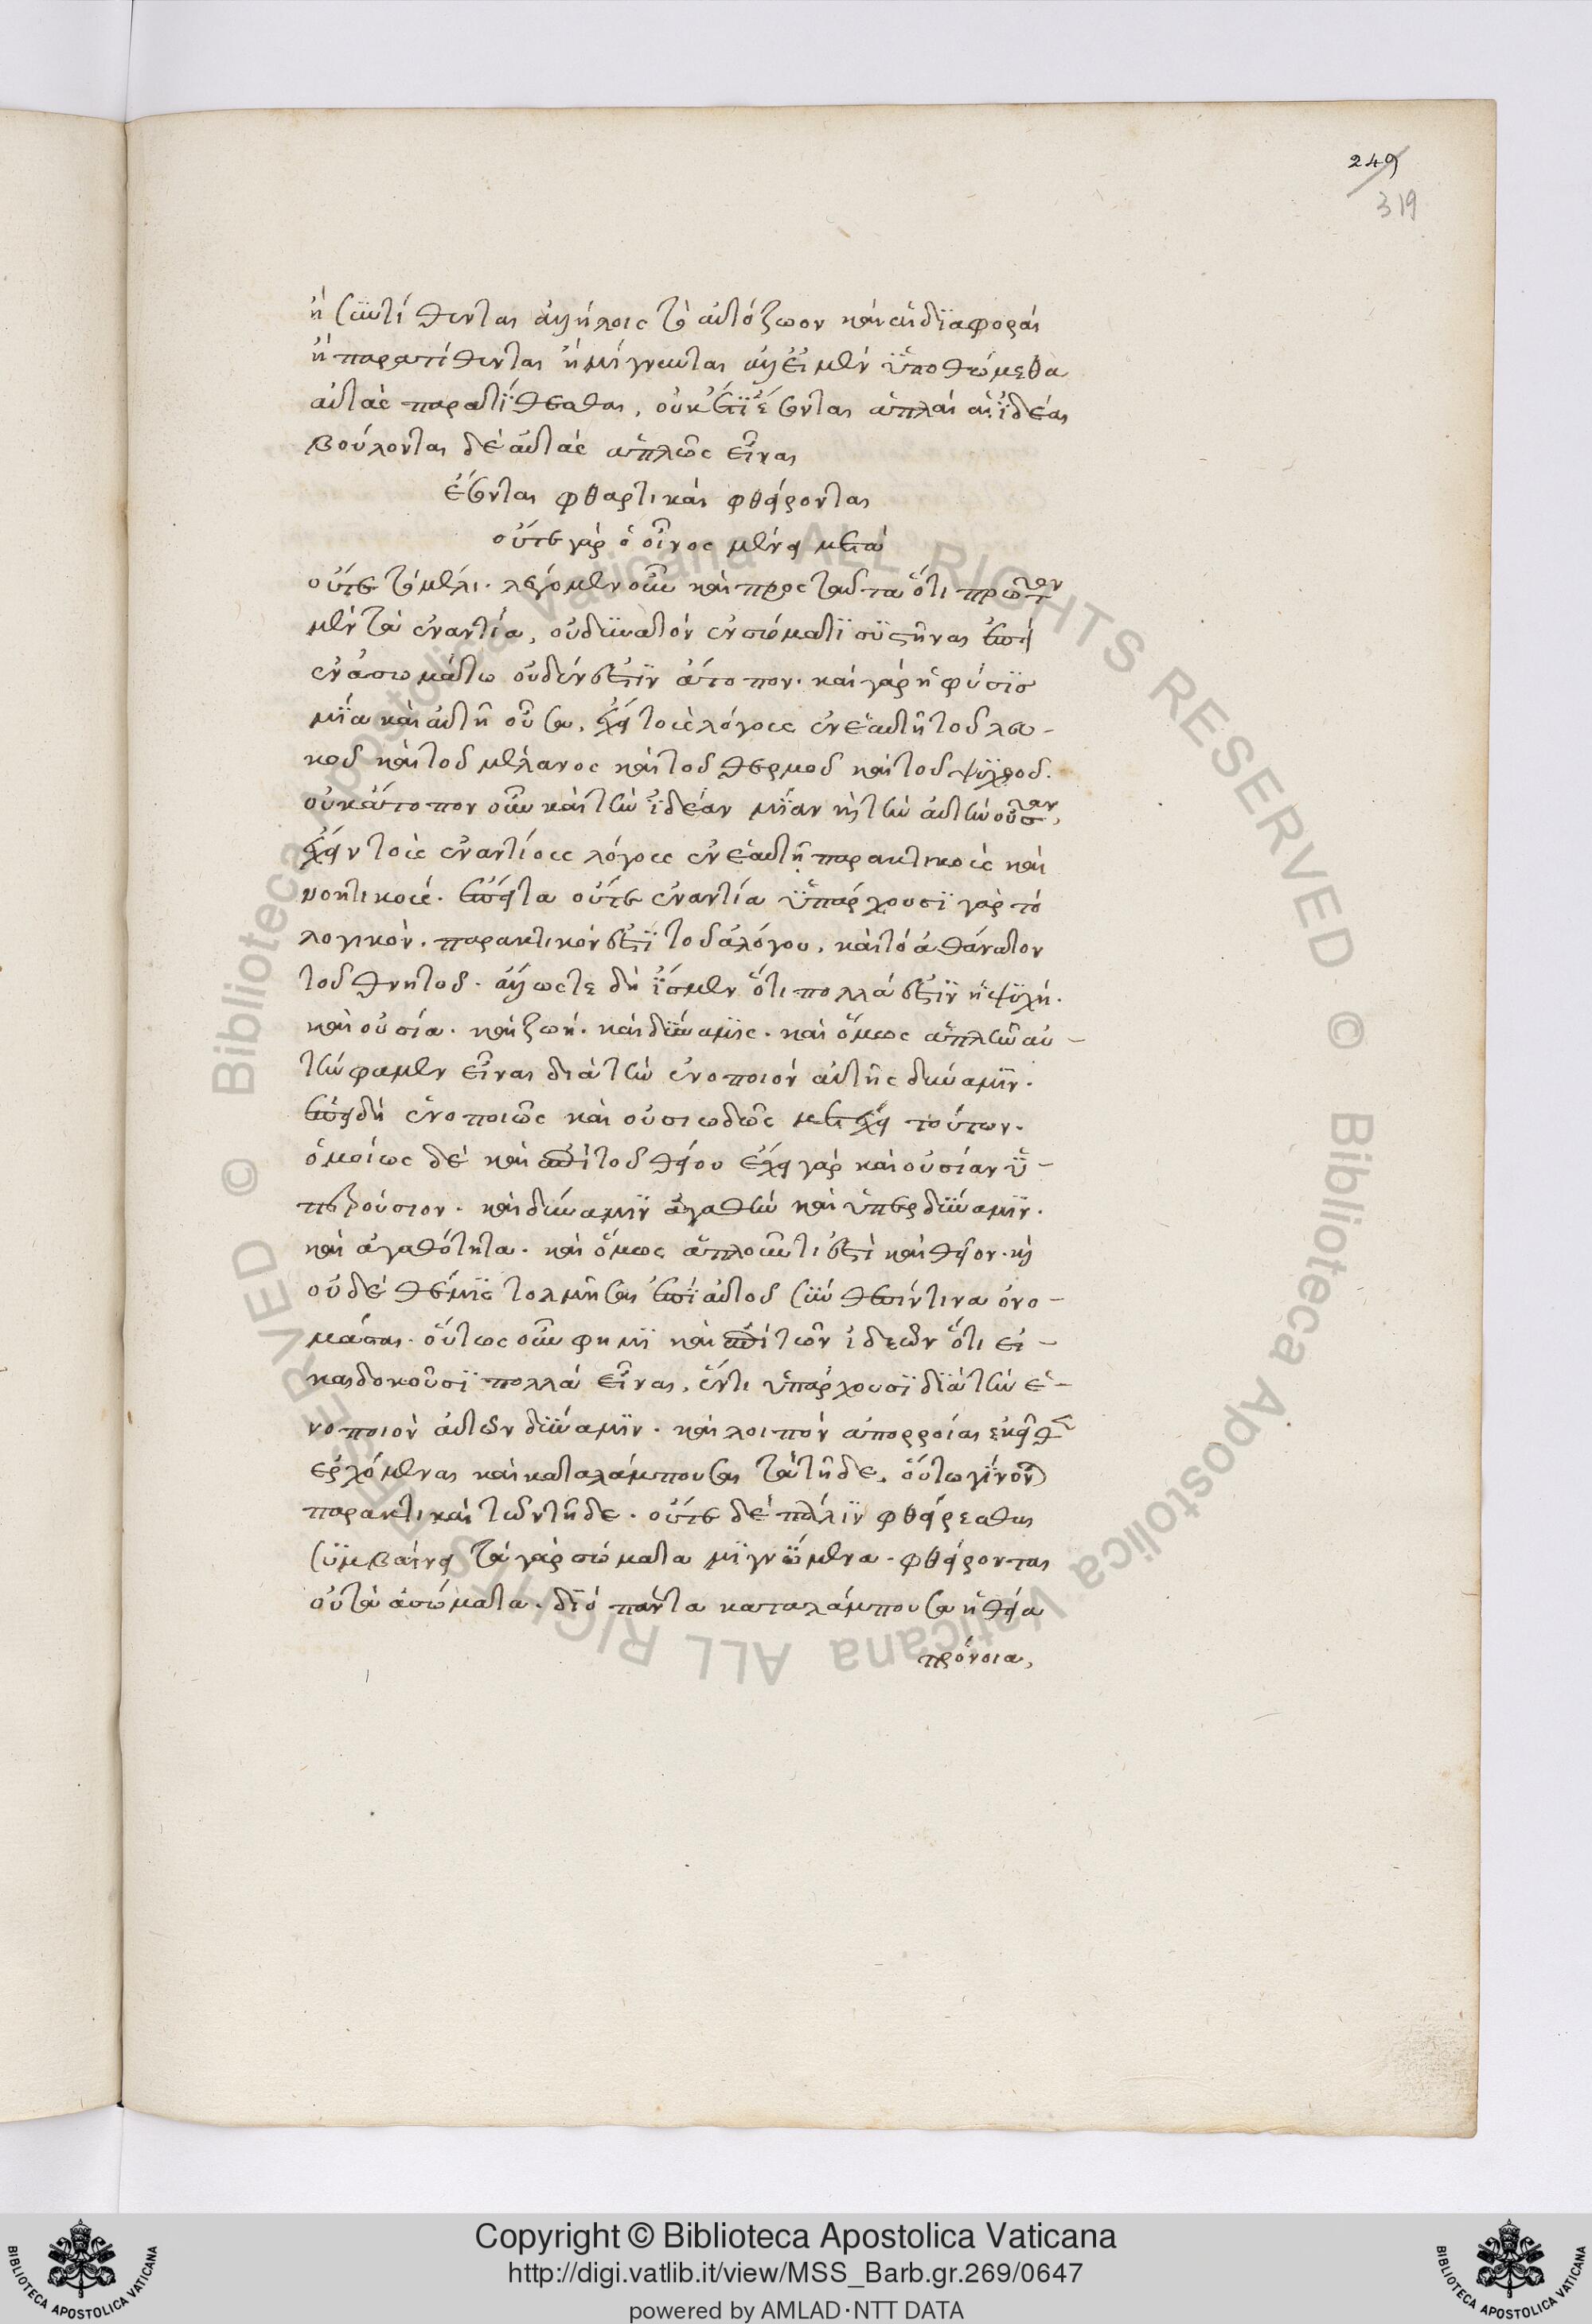 249
319
ἢ συντίθενται ἀλλήλοις τὸ αὐτόζωον καὶ αἱ διαφοραὶ
ἢ παρατίθενται ἢ μίγνυνται ἀλλ' εἰ μὲν ὑποθώμεθα
αὐτὰς παρατίθεσθαι, οὐκ ἔτι ἔσονται ἁπλαῖ αἱ ἰδέαι
βούλονται δὲ αὐτὰς ἁπλῶς εἶναι
ἔσονται φθαρτικαὶ φθείρονται
οὔτε γὰρ ὁ οἶνος μένει μετὰ
οὔτε τὸ μέλι. λέγομεν οὖν καὶ πρὸς ταῦτα ὅτι πρῶτον
μὲν τὰ ἐναντία, οὐ δυνατὸν ἐν σώματι συστῆναι ἐπεὶ
ἐν ἀσωμάτω οὐδέν ἐστιν ἄτοπον. καὶ γὰρ ἡ φύσις
μία καὶ αὐτὴ οὖσα, ἔχει τοὺς λόγους ἐν ἑαυτῆ τοῦ λευ-
κοῦ καὶ τοῦ μέλανος καὶ τοῦ θερμοῦ καὶ τοῦ ψυχροῦ.
οὐκ ἄτοπον οὖν καὶ τὴν ἰδέαν μίαν καὶ τὴν αὐτὴν οὖσαν,
ἔχειν τοὺς ἐναντίους λόγους ἐν ἑαυτῆ παρακτικοὺς καὶ
νοητικούς. ἔπειτα οὔτε ἐναντία ὑπάρχουσι γὰρ τὸ
λογικὸν. παρακτικόν ἐστι τοῦ ἀλόγου, καὶ τὸ ἀθάνατον
τοῦ θνητοῦ. ἄλλως τε δὴ ἴσμεν ὅτι πολλά ἐστιν ἡ ψυχή.
καὶ οὐσία. καὶ ζωή. καὶ δύναμις. καὶ ὅμως ἁπλῆν αὐ-
τήν φαμεν εἶναι διὰ τὴν ἑνοποιὸν αὐτῆς δύναμιν.
ἐπειδὴ ἑνοποιῶς καὶ οὐσιωδῶς μετέχει τούτων.
ὁμοίως δὲ καὶ ἐπὶ τοῦ θείου ἔχει γὰρ καὶ οὐσίαν ὑ-
περούσιον. καὶ δύναμιν ἀγαθὴν καὶ ὑπερδύναμιν.
καὶ ἀγαθότητα. καὶ ὅμως ἁπλοῦν τι ἐστὶ καὶ θεῖον. καὶ
οὐδὲ θέμις τολμῆσαι ἐπὶ αὐτοῦ σύνθεσίν τινα ὀνο-
μάσαι. οὕτως οὖν φημὶ καὶ ἐπὶ τῶν ἰδεῶν ὅτι εἰ-
καὶ δοκοῦσι πολλὰ εἶναι, ἕν τι ὑπάρχουσι διὰ τὴν ἑ-
νοποιὸν αὐτῶν δύναμιν. καὶ λοιπὸν ἀπορροίαι ἐκεῖθεν
ἐρχόμεναι καὶ καταλάμπουσαι τὰ τῆδε, οὕτω γίνονται
παρακτικαὶ τῶν τῆδε. οὔτε δὲ πάλιν φθείρεσθαι
συμβαίνει τὰ γὰρ σώματα μιγνύμενα. φθείρονται
οὐ τὰ ἀσώματα. διὸ πάντα καταλάμπουσα ἡ θεία
πρόνοια,
Copyright © Biblioteca Apostolica Vaticana
http://digi.vatlib.it/view/MSS_Barb.gr.269/0647
powered by AMLAD·NTT DATA